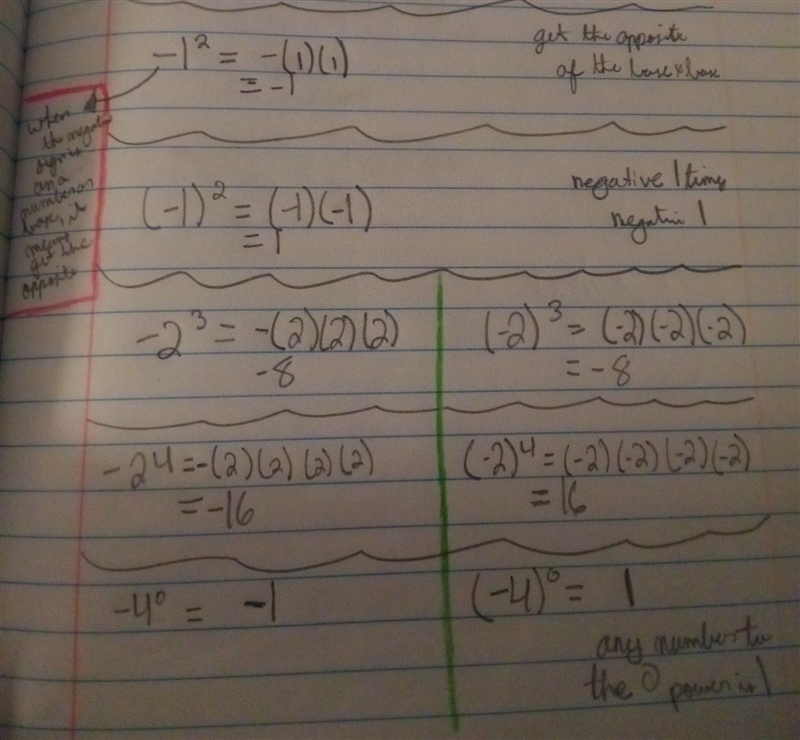 -1² = -(1)(1)
= -1
get the opposite
of the base x base
when
the negative
sign is
on a
number or
base, it
means
get the
opposite
(-1)² = (-1)(-1)
= 1
negative 1 times
negative 1
-2³ = -(2)(2)(2)
-8
(-2)³ = (-2)(-2)(-2)
= -8
-24 = -(2)(2)(2)(2)
= -16
(-2)⁴ = (-2)(-2)(-2)(-2)
= 16
-4⁰ = -1
(-4)⁰ = 1
any number to
the 0 power is 1